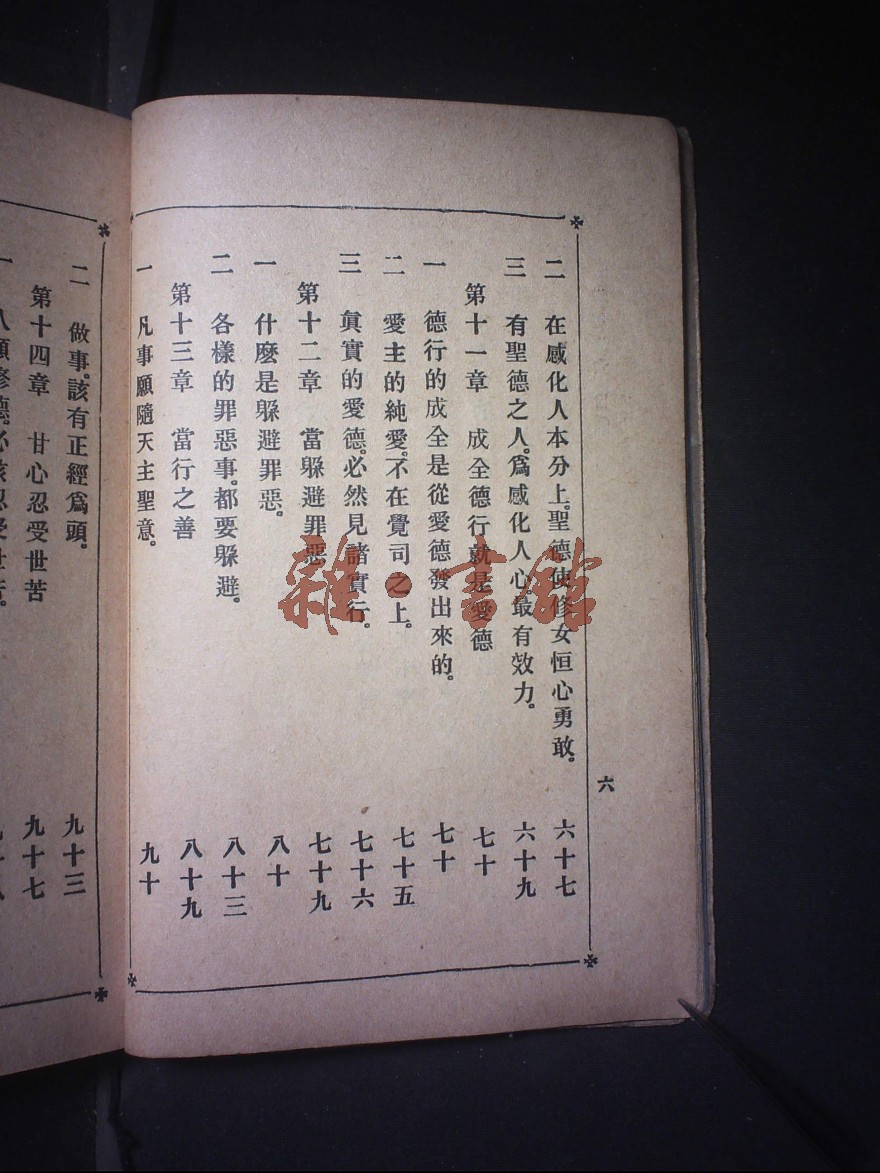 六
二 在感化人本分上。聖德使修女恒心勇敢。 六十七
三 有聖德之人。爲感化人心。最有效力。 六十九
第十一章 成全德行就是愛德 七十
一 德行的成全是從愛德發出來的。 七十
二 愛主的純愛。不在覺司之上。 七十五
三 眞實的愛德。必然見諸實行。 七十六
第十二章 當躲避罪惡 七十九
一 什麽是躲避罪惡。 八十
二 各樣的罪惡事。都要躲避。 八十三
第十三章 當行之善 八十九
一 凡事願隨天主聖意。 九十
二 做事。該有正經爲頭。 九十三
第十四章 甘心忍受世苦 九十七
雜·書館